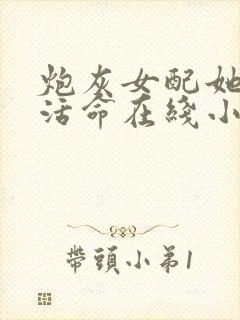 炮灰女配她
活命在綫小
帶頭小弟1